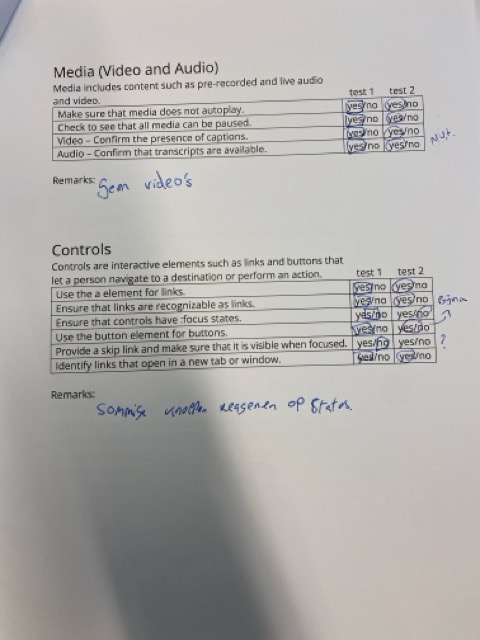 Media (Video and Audio)
Media includes content such as pre-recorded and live audio
and video.
test 1 test 2
Make sure that media does not autoplay. yes/no yes/no
Check to see that all media can be paused. yes/no yes/no
Video – Confirm the presence of captions. yes/no yes/no
Audio – Confirm that transcripts are available. yes/no yes/no
Remarks: Geen video's
Controls
Controls are interactive elements such as links and buttons that
let a person navigate to a destination or perform an action.
test 1 test 2
Use the a element for links. yes/no yes/no
Ensure that links are recognizable as links. yes/no yes/no
Ensure that controls have :focus states. yes/no yes/no
Use the button element for buttons. yes/no yes/no
Provide a skip link and make sure that it is visible when focused. yes/no yes/no ?
Identify links that open in a new tab or window. yes/no yes/no
Remarks:
Sommige knoppen reageren op status.